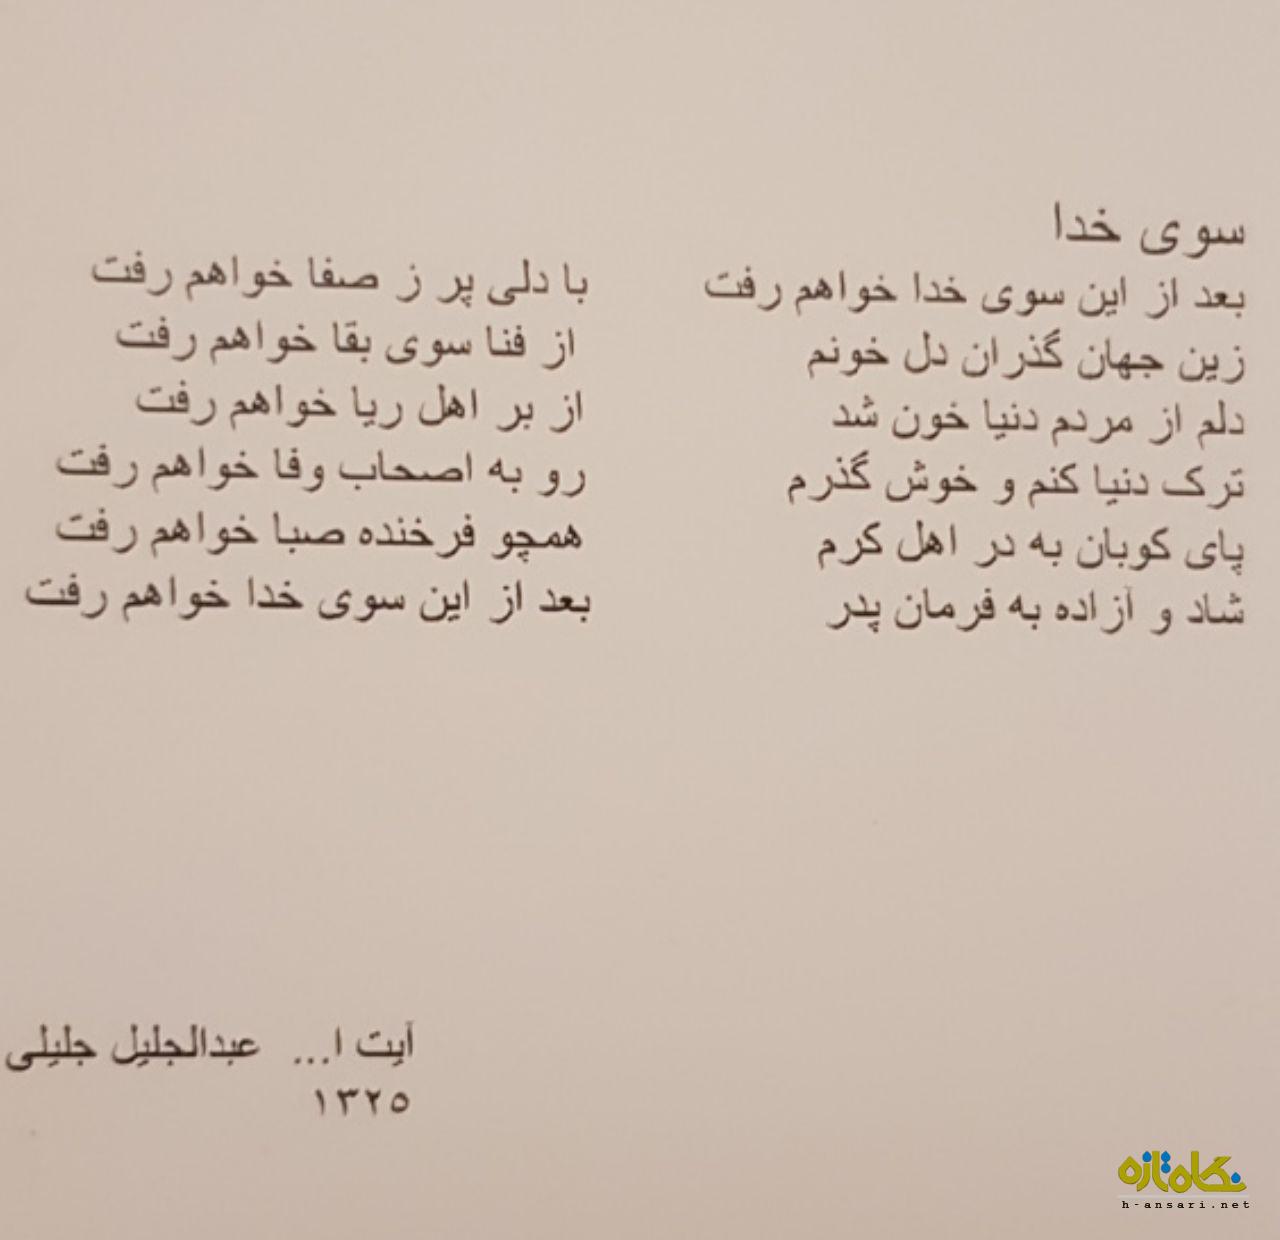 سوی خدا
بعد از این سوی خدا خواهم رفت با دلی پر ز صفا خواهم رفت
زین جهان گذران دل خونم از فنا سوی بقا خواهم رفت
دلم از مردم دنیا خون شد از بر اهل ریا خواهم رفت
ترک دنیا کنم و خوش گذرم رو به اصحاب وفا خواهم رفت
پای کوبان به در اهل کرم همچو فرخنده صبا خواهم رفت
شاد و آزاده به فرمان پدر بعد از این سوی خدا خواهم رفت
آیت ا... عبدالجلیل جلیلی
۱۳۲۵
نگاه تازه
h-ansari.net